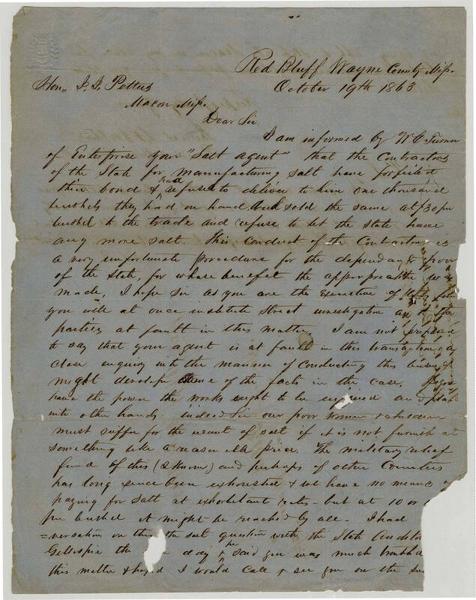 Red Bluff Wayne County Miss.
October 19th 1863
Hon. J. J. Pettus
Macon Miss.
Dear Sir
I am informed by W. C. Turner
of Enterprise your "Salt agent" that the Contractors
of the State for manufacturing salt have forfeited
their bond & refused to deliver to him one thousand
bushels they had on hand And sold the same at $30 per
bushel to the trade and refuse to let the State have
any more salt. This conduct of the Contractors is
a very unfortunate procedure for the dependant & poor
of the State, for whose benefit the appropriation was
made, I hope Sir as you are the Executive of the State
you will at once institute Strict investigation as to the
parties at fault in this matter. I am not prepared
to say that your agent is at fault in this transaction, a
close enquiry into the manner of Conducting this business
might develope some of the facts in the case.
have the power the works ought to be seized and placed
into other hands indeed Sir our poor women & children
must suffer for the want of salt if it is not furnish at
something like a reasonable price. The military relief
fund of this (& Know) and perhaps of other Counties
has long since been exhausted & we have no means of
paying for salt at exhorbitant rates - but at 10 or
per bushel it might be reached by all. I had
=versation on this the salt question with the State Auditor
Gillespie the day & said you was much troubled
this matter & hoped I would call & see you on the